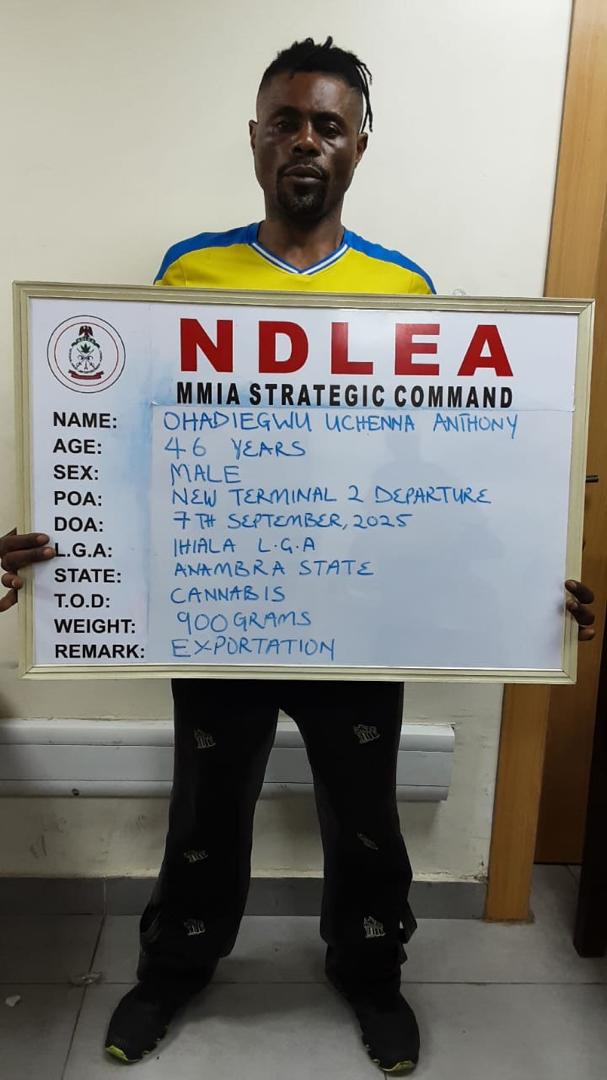 NDLEA
MMIA STRATEGIC COMMAND
NAME: OHADIEGWU UCHENNA ANTHONY
AGE: 46 YEARS
SEX: MALE
POA: NEW TERMINAL 2 DEPARTURE
DOA: 7TH SEPTEMBER, 2025
L.G.A: IHIALA L.G.A
STATE: ANAMBRA STATE
T.O.D: CANNABIS
WEIGHT: 900 GRAMS
REMARK: EXPORTATION